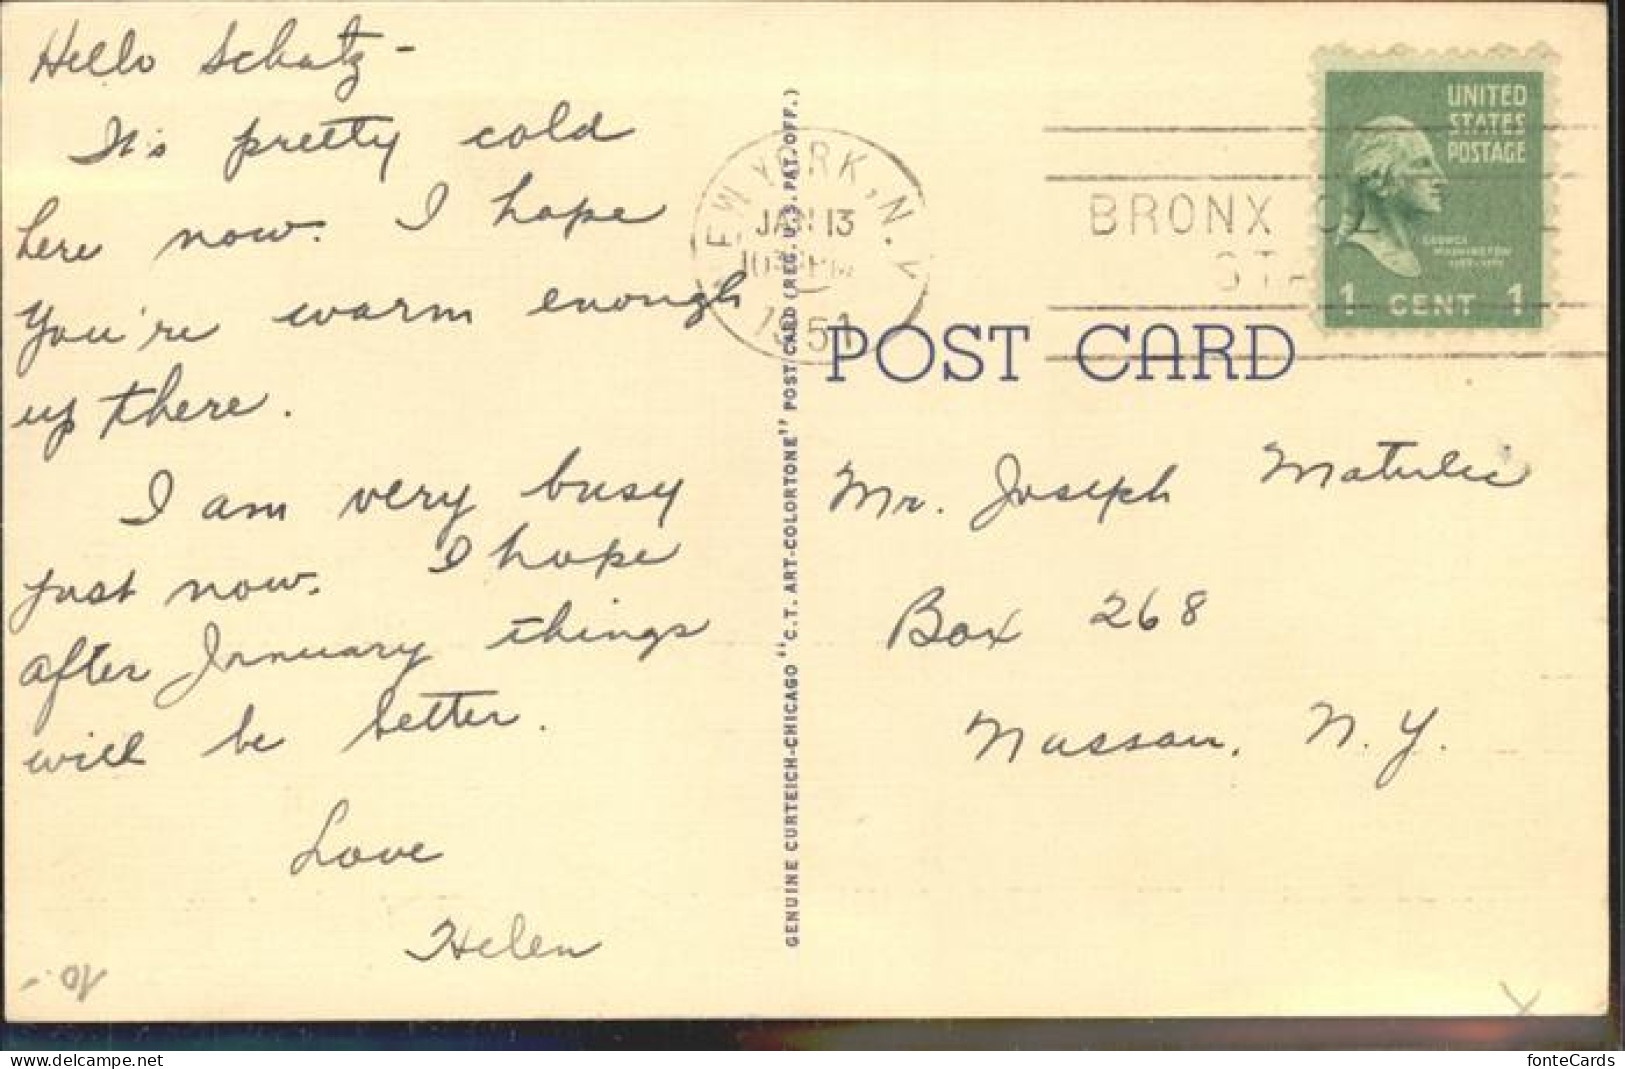 Hello Schatz -
It's pretty cold
here now. I hope
you're warm enough
up there.
I am very busy
just now. I hope
after January things
will be better.
Love
Helen
10.-
GENUINE CURTEICH-CHICAGO "C.T. ART-COLORTONE" POST CARD (REG. U.S. PAT. OFF.)
NEW YORK, N.Y.
JAN 13
1951
BRONX
STA
UNITED
STATES
POSTAGE
GEORGE
WASHINGTON
1 CENT 1
POST CARD
Mr. Joseph Matulic
Box 268
Nassau, N.Y.
fonteCards
https://www.delcampe.net